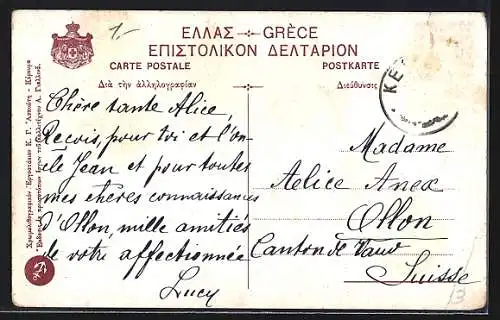 1.-
ΕΛΛΑΣ GRÈCE
ΕΠΙΣΤΟΛΙΚΟΝ ΔΕΛΤΑΡΙΟΝ
CARTE POSTALE POSTKARTE
Διὰ τὴν ἀλληλογραφίαν Διεύθυνσις
ΚΕ
Chère tante Alice,
Reçois, pour toi et l'on-
cle Jean et pour toutes
mes chères connaissances
d'Ollon, mille amitiés
de votre affectionnée
Lucy
Madame
Alice Anex
Ollon
Canton de Vaud
Suisse
13